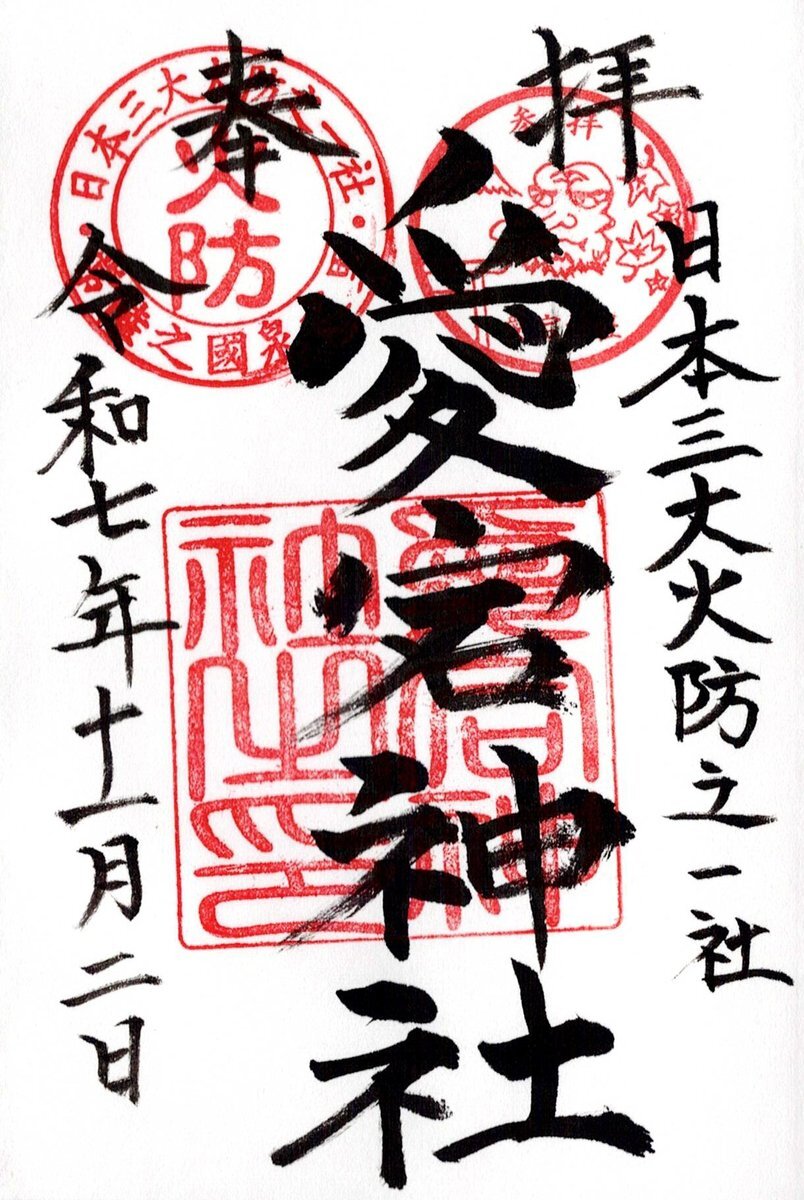 奉拝
日本三大火防之一社
愛宕神社
令和七年十一月二日
日本三大火防之一社
火防
参拝
愛宕神
社之印